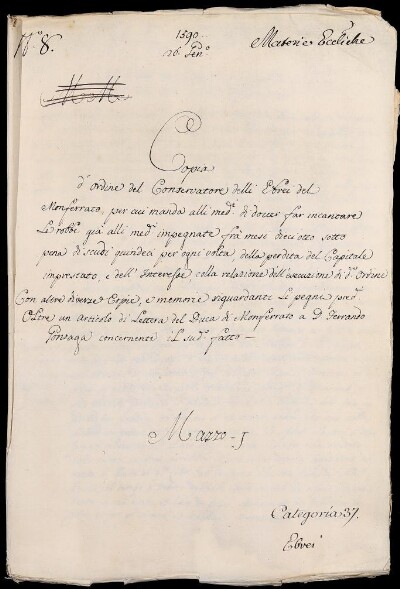 N.º 8.
1590
26 Gen.º
Materie Ecc.liche
Copia
d'ordine del Conservatore delli Ebrei del
Monferrato, per cui manda alli med.i di dover far incantare
le robbe già alli med.i impegnate frà mese dieciotto sotto
pena di scudi quindeci per ogni volta, della perdita del Capitale
imprestato, e dell'Interesse colla relazione dell'esecuzione di d.º ordine
Con altre diverse Copie, e memorie riguardanti le pegne pred.e
Oltre un articolo di Lettera del Duca di Monferrato a D. Ferrando
Gonzaga concernente il sud.º fatto
Mazzo - j
Categoria 37.
Ebrei